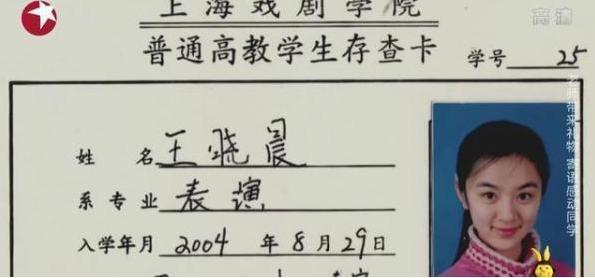 上海戏剧学院
高清
普通高教学生存查卡
学号 25
老师带来礼物 寄语感动同学
姓名 王晓晨
系专业 表演
入学年月 2004 年 8 月 29 日